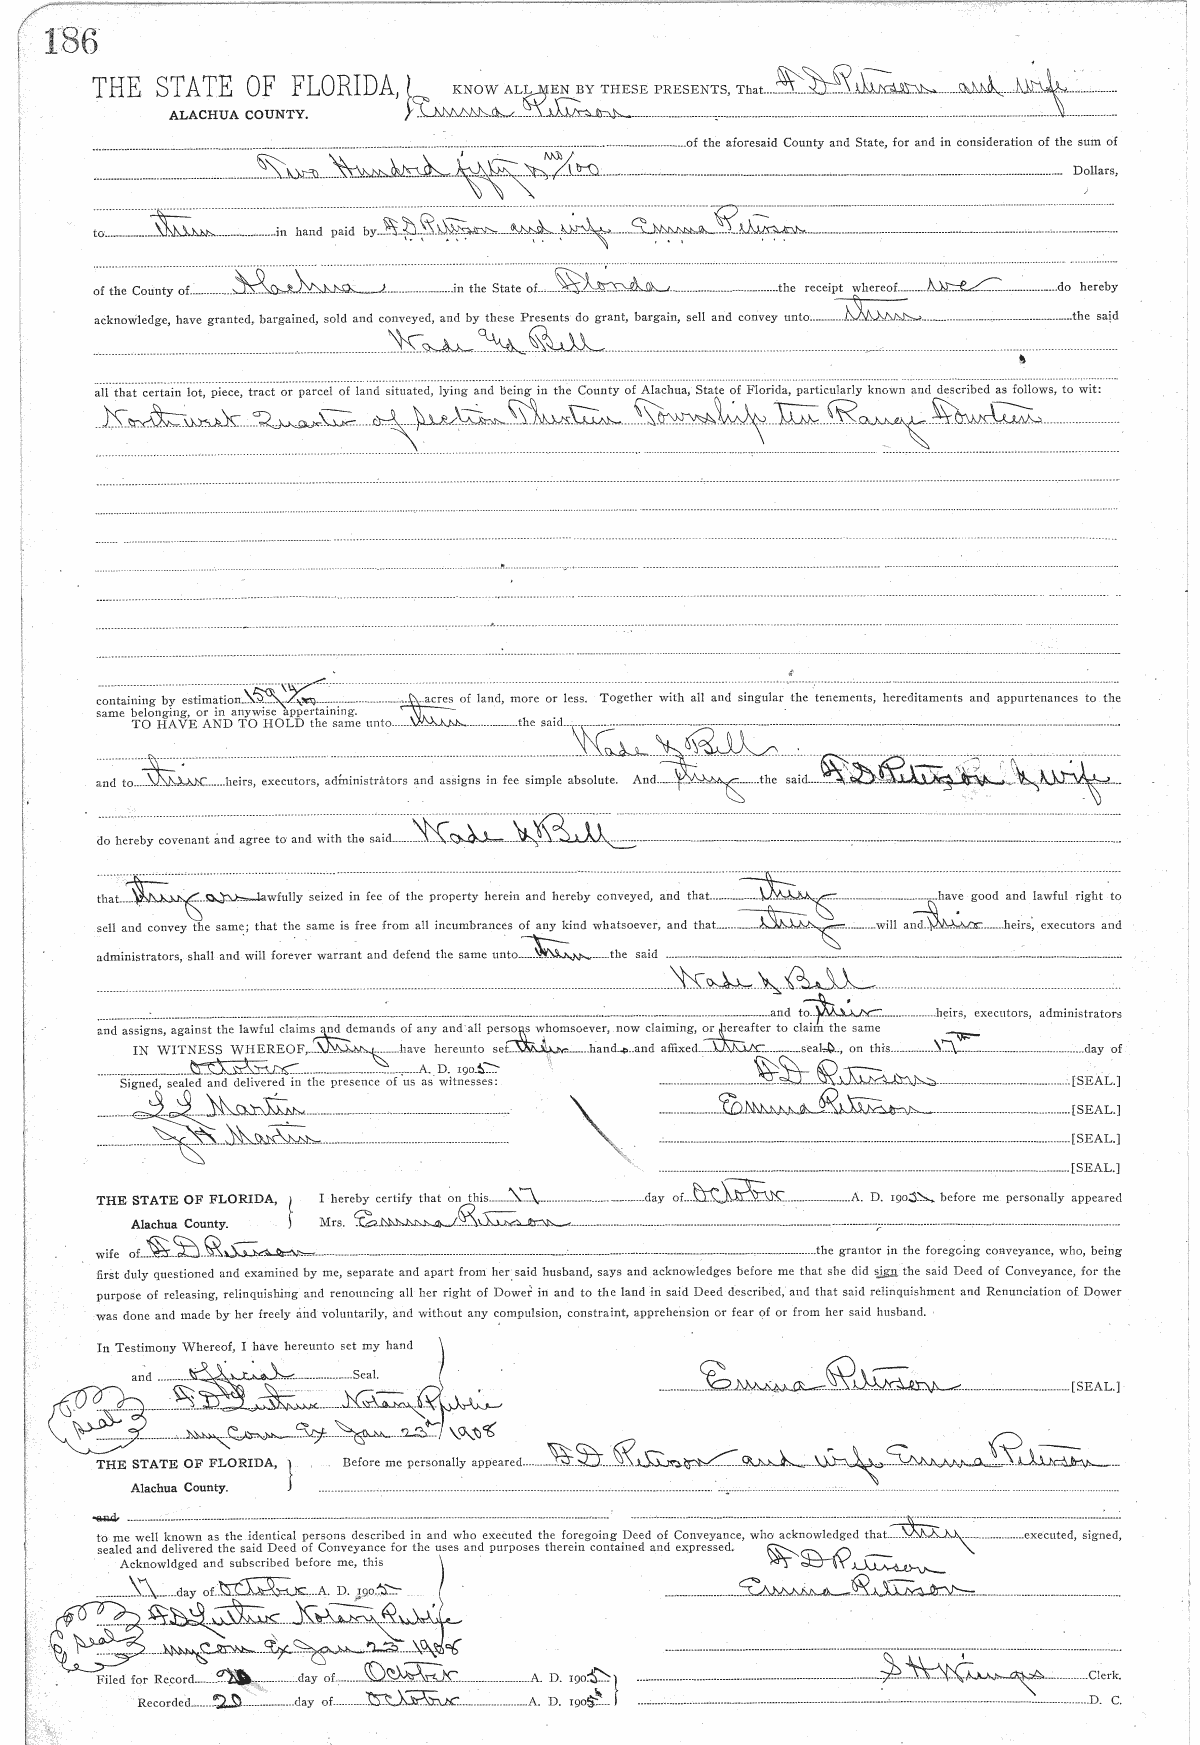 186
THE STATE OF FLORIDA, } KNOW ALL MEN BY THESE PRESENTS, That A D Peterson and wife
ALACHUA COUNTY. Emma Peterson
of the aforesaid County and State, for and in consideration of the sum of
Two Hundred fifty & no/100 Dollars,
to them in hand paid by A D Peterson and wife Emma Peterson
of the County of Alachua, in the State of Florida the receipt whereof we do hereby
acknowledge, have granted, bargained, sold and conveyed, and by these Presents do grant, bargain, sell and convey unto them the said
Wade and Bell
all that certain lot, piece, tract or parcel of land situated, lying and being in the County of Alachua, State of Florida, particularly known and described as follows, to wit:
North west Quarter of Section Therteen Township ten Range Fourteen
containing by estimation 159 14/100 acres of land, more or less. Together with all and singular the tenements, hereditaments and appurtenances to the
same belonging, or in anywise appertaining.
TO HAVE AND TO HOLD the same unto them the said
Wade & Bell
and to their heirs, executors, administrators and assigns in fee simple absolute. And they the said A D Peterson & wife
do hereby covenant and agree to and with the said Wade & Bell
that they are lawfully seized in fee of the property herein and hereby conveyed, and that they have good and lawful right to
sell and convey the same; that the same is free from all incumbrances of any kind whatsoever, and that they will and their heirs, executors and
administrators, shall and will forever warrant and defend the same unto them the said
Wade & Bell
and to their heirs, executors, administrators
and assigns, against the lawful claims and demands of any and all persons whomsoever, now claiming, or hereafter to claim the same
IN WITNESS WHEREOF, they have hereunto set their hands and affixed their seals, on this 17th day of
October A. D. 1905
Signed, sealed and delivered in the presence of us as witnesses: A D Peterson [SEAL.]
L L Martin Emma Peterson [SEAL.]
J H Martin [SEAL.]
[SEAL.]
THE STATE OF FLORIDA, } I hereby certify that on this 17 day of October A. D. 1905 before me personally appeared
Alachua County. Mrs. Emma Peterson
wife of A D Peterson the grantor in the foregoing conveyance, who, being
first duly questioned and examined by me, separate and apart from her said husband, says and acknowledges before me that she did sign the said Deed of Conveyance, for the
purpose of releasing, relinquishing and renouncing all her right of Dower in and to the land in said Deed described, and that said relinquishment and Renunciation of Dower
was done and made by her freely and voluntarily, and without any compulsion, constraint, apprehension or fear of or from her said husband.
In Testimony Whereof, I have hereunto set my hand
and official Seal. Emma Peterson [SEAL.]
Seal A D Luther Notary Public
my Com Ex Jan 23rd 1908
THE STATE OF FLORIDA, } Before me personally appeared A D Peterson and wife Emma Peterson
Alachua County.
and
to me well known as the identical persons described in and who executed the foregoing Deed of Conveyance, who acknowledged that they executed, signed,
sealed and delivered the said Deed of Conveyance for the uses and purposes therein contained and expressed.
Acknowldged and subscribed before me, this A D Peterson
17 day of October A. D. 1905 Emma Peterson
Seal A D Luther Notary Public
my Com Ex Jan 23 1908
Filed for Record 20 day of October A. D. 1905 S H Wienges Clerk.
Recorded 20 day of October A. D. 1905 D. C.